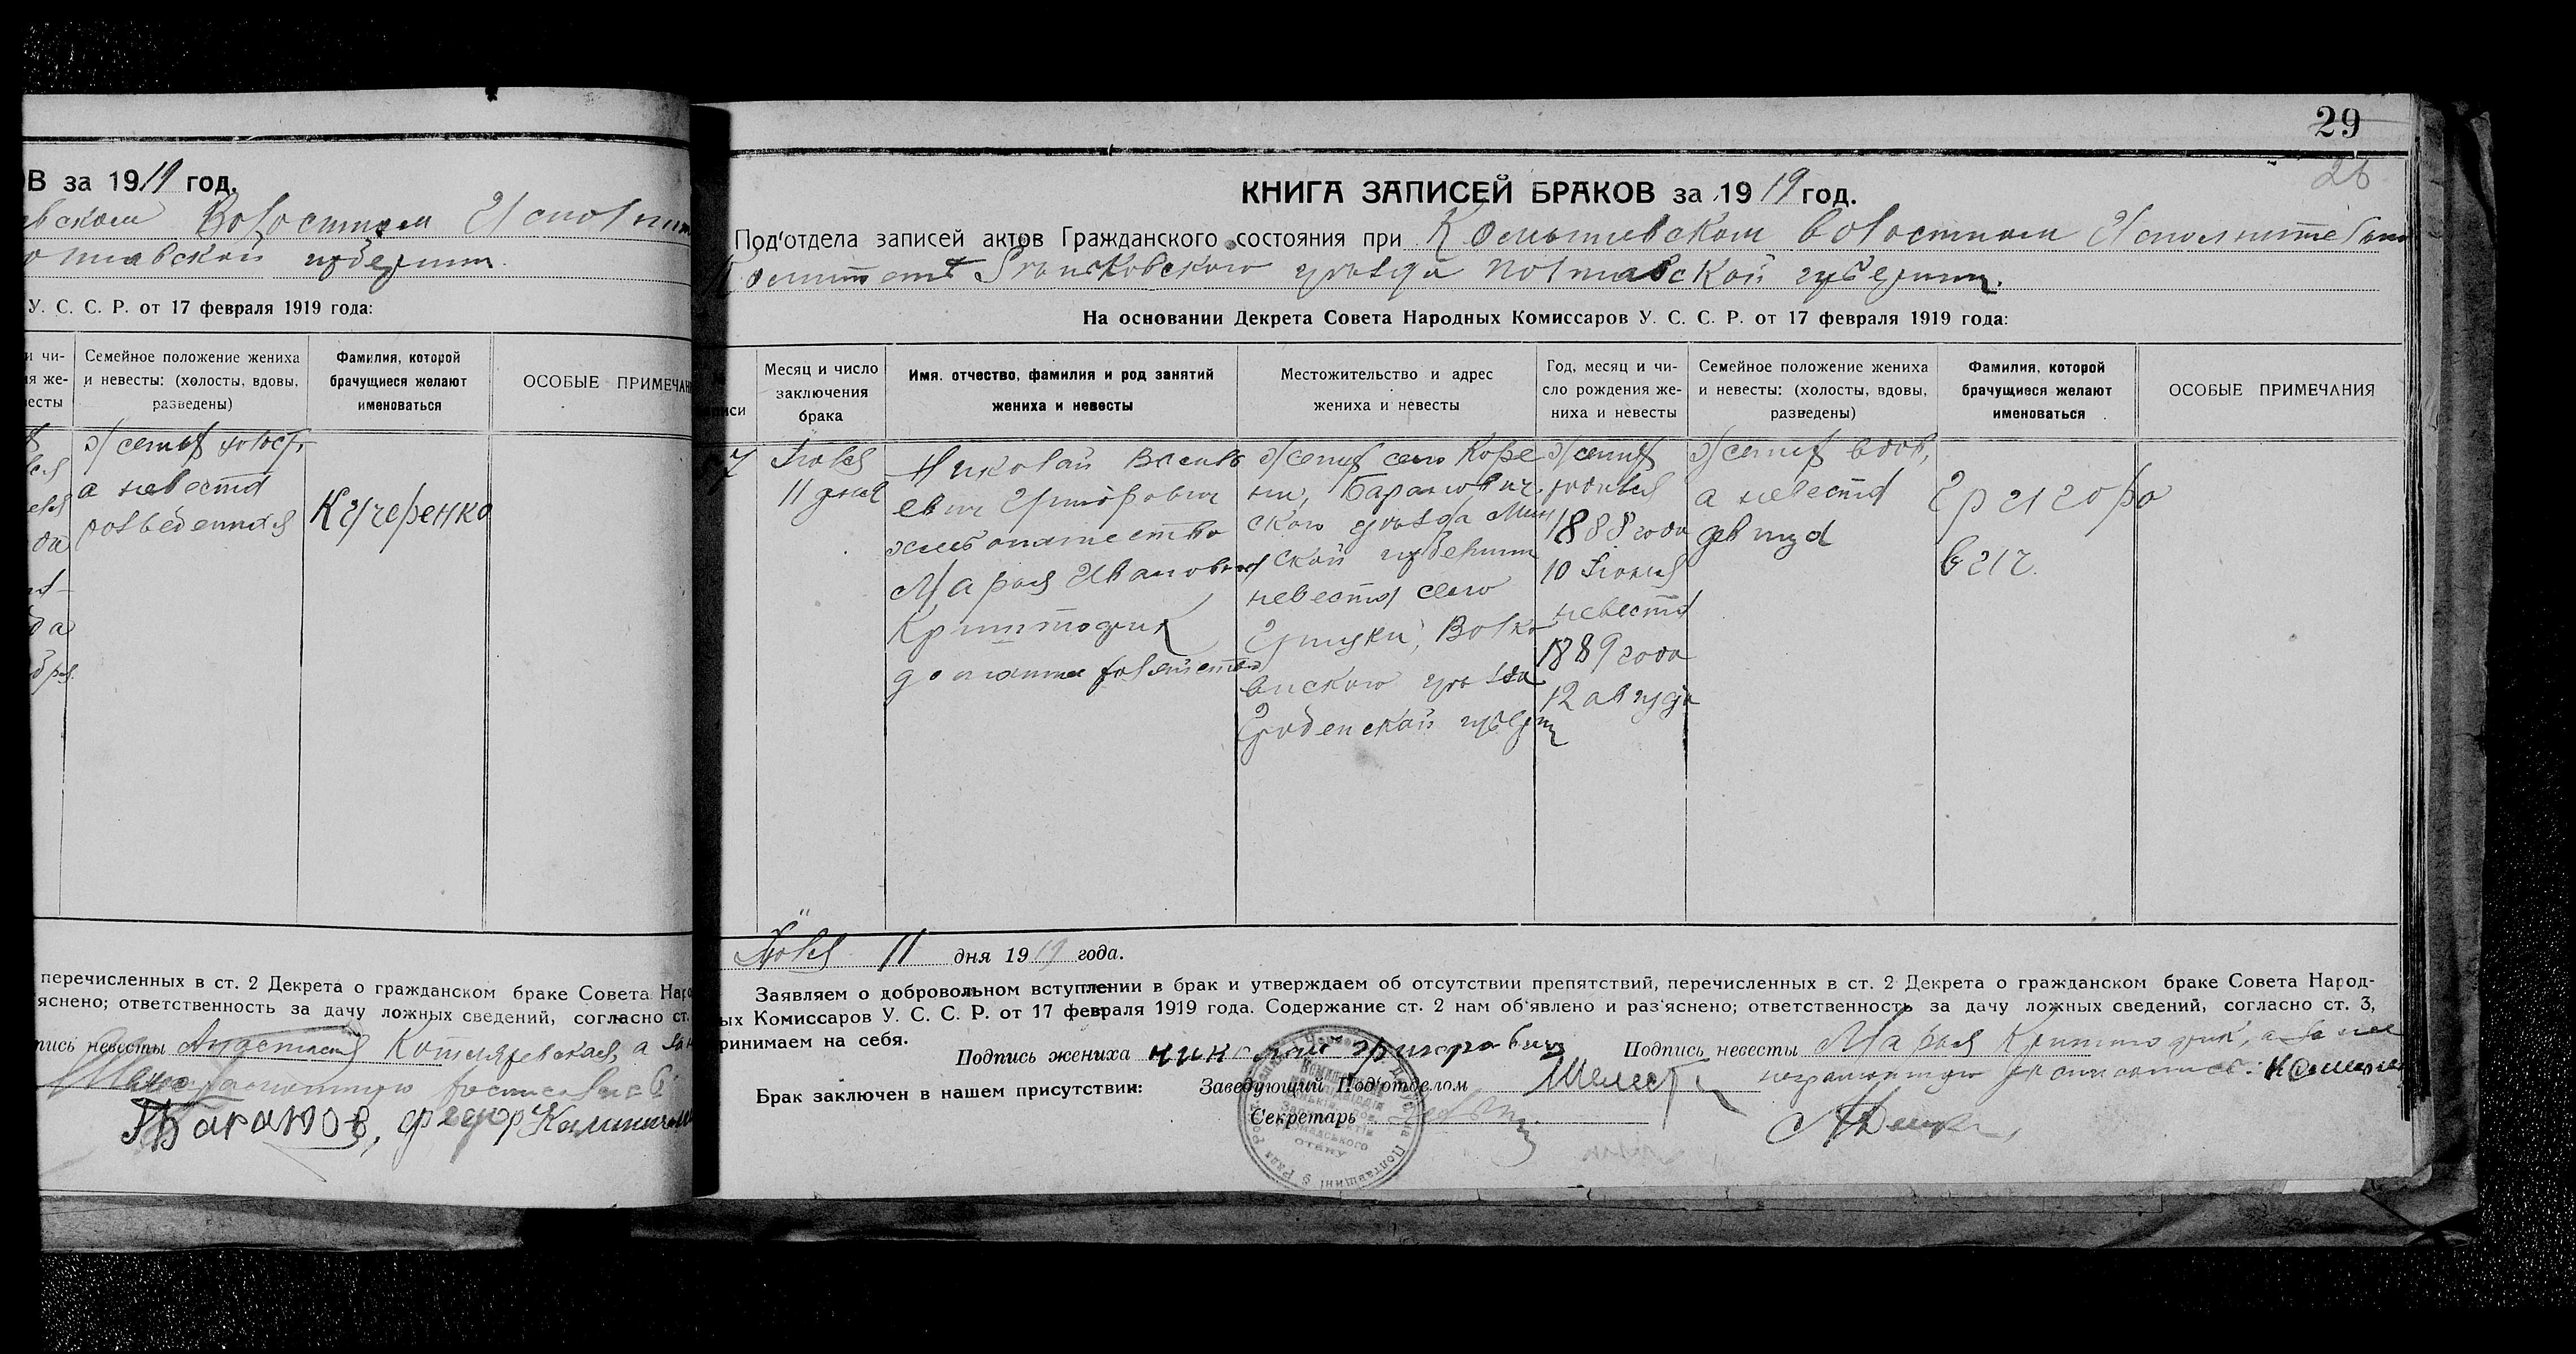 ОВ за 1919 год.
Волостном Исполни
губернии
У. С. С. Р. от 17 февраля 1919 года:
и чи-
ия же-
весты
Семейное положение жениха
и невесты: (холосты, вдовы,
разведены)
Фамилия, которой
брачущиеся желают
именоваться
ОСОБЫЕ ПРИМЕЧАН
Жених холост,
а невеста
розведенная
Кучеренко
перечисленных в ст. 2 Декрета о гражданском браке Совета Наро
яснено; ответственность за дачу ложных сведений, согласно ст.
пись невесты Анастасия Котляревская, а за
Баранов, Федор Калини
29
26
КНИГА ЗАПИСЕЙ БРАКОВ за 1919 год.
Под'отдела записей актов Гражданского состояния при волостном Исполнительно
Комитете уезда Полтавской губернии.
На основании Декрета Совета Народных Комиссаров У. С. С. Р. от 17 февраля 1919 года:
писи
Месяц и число
заключения
брака
Имя, отчество, фамилия и род занятий
жениха и невесты
Местожительство и адрес
жениха и невесты
Год, месяц и чи-
сло рождения же-
ниха и невесты
Семейное положение жениха
и невесты: (холосты, вдовы,
разведены)
Фамилия, которой
брачущиеся желают
именоваться
ОСОБЫЕ ПРИМЕЧАНИЯ
7
Июля
11 дня
Николай Василь
евич Григорович
хлебопашество
Марья Ивановна
Криштофик
домашнее хозяйство
Жених село Коре
ни, Баранович
ского уезда Мин
ской губернии
невеста село
Грицки, Волко
виского уезда
Гродненской губерни
Жених
родился
1888 года
10 Июня
невеста
1889 года
12 августа
Жених вдов,
а невеста
девица
Григоро
вич.
Июля 11 дня 1919 года.
Заявляем о добровольном вступлении в брак и утверждаем об отсутствии препятствий, перечисленных в ст. 2 Декрета о гражданском браке Совета Народ-
ых Комиссаров У. С. С. Р. от 17 февраля 1919 года. Содержание ст. 2 нам об'явлено и раз'яснено; ответственность за дачу ложных сведений, согласно ст. 3,
ринимаем на себя.
Подпись жениха николай григорович
Подпись невесты Марья Криштофик, а за нее
неграмотную росписался
Брак заключен в нашем присутствии:
Заведующий Под'отделом
Секретарь